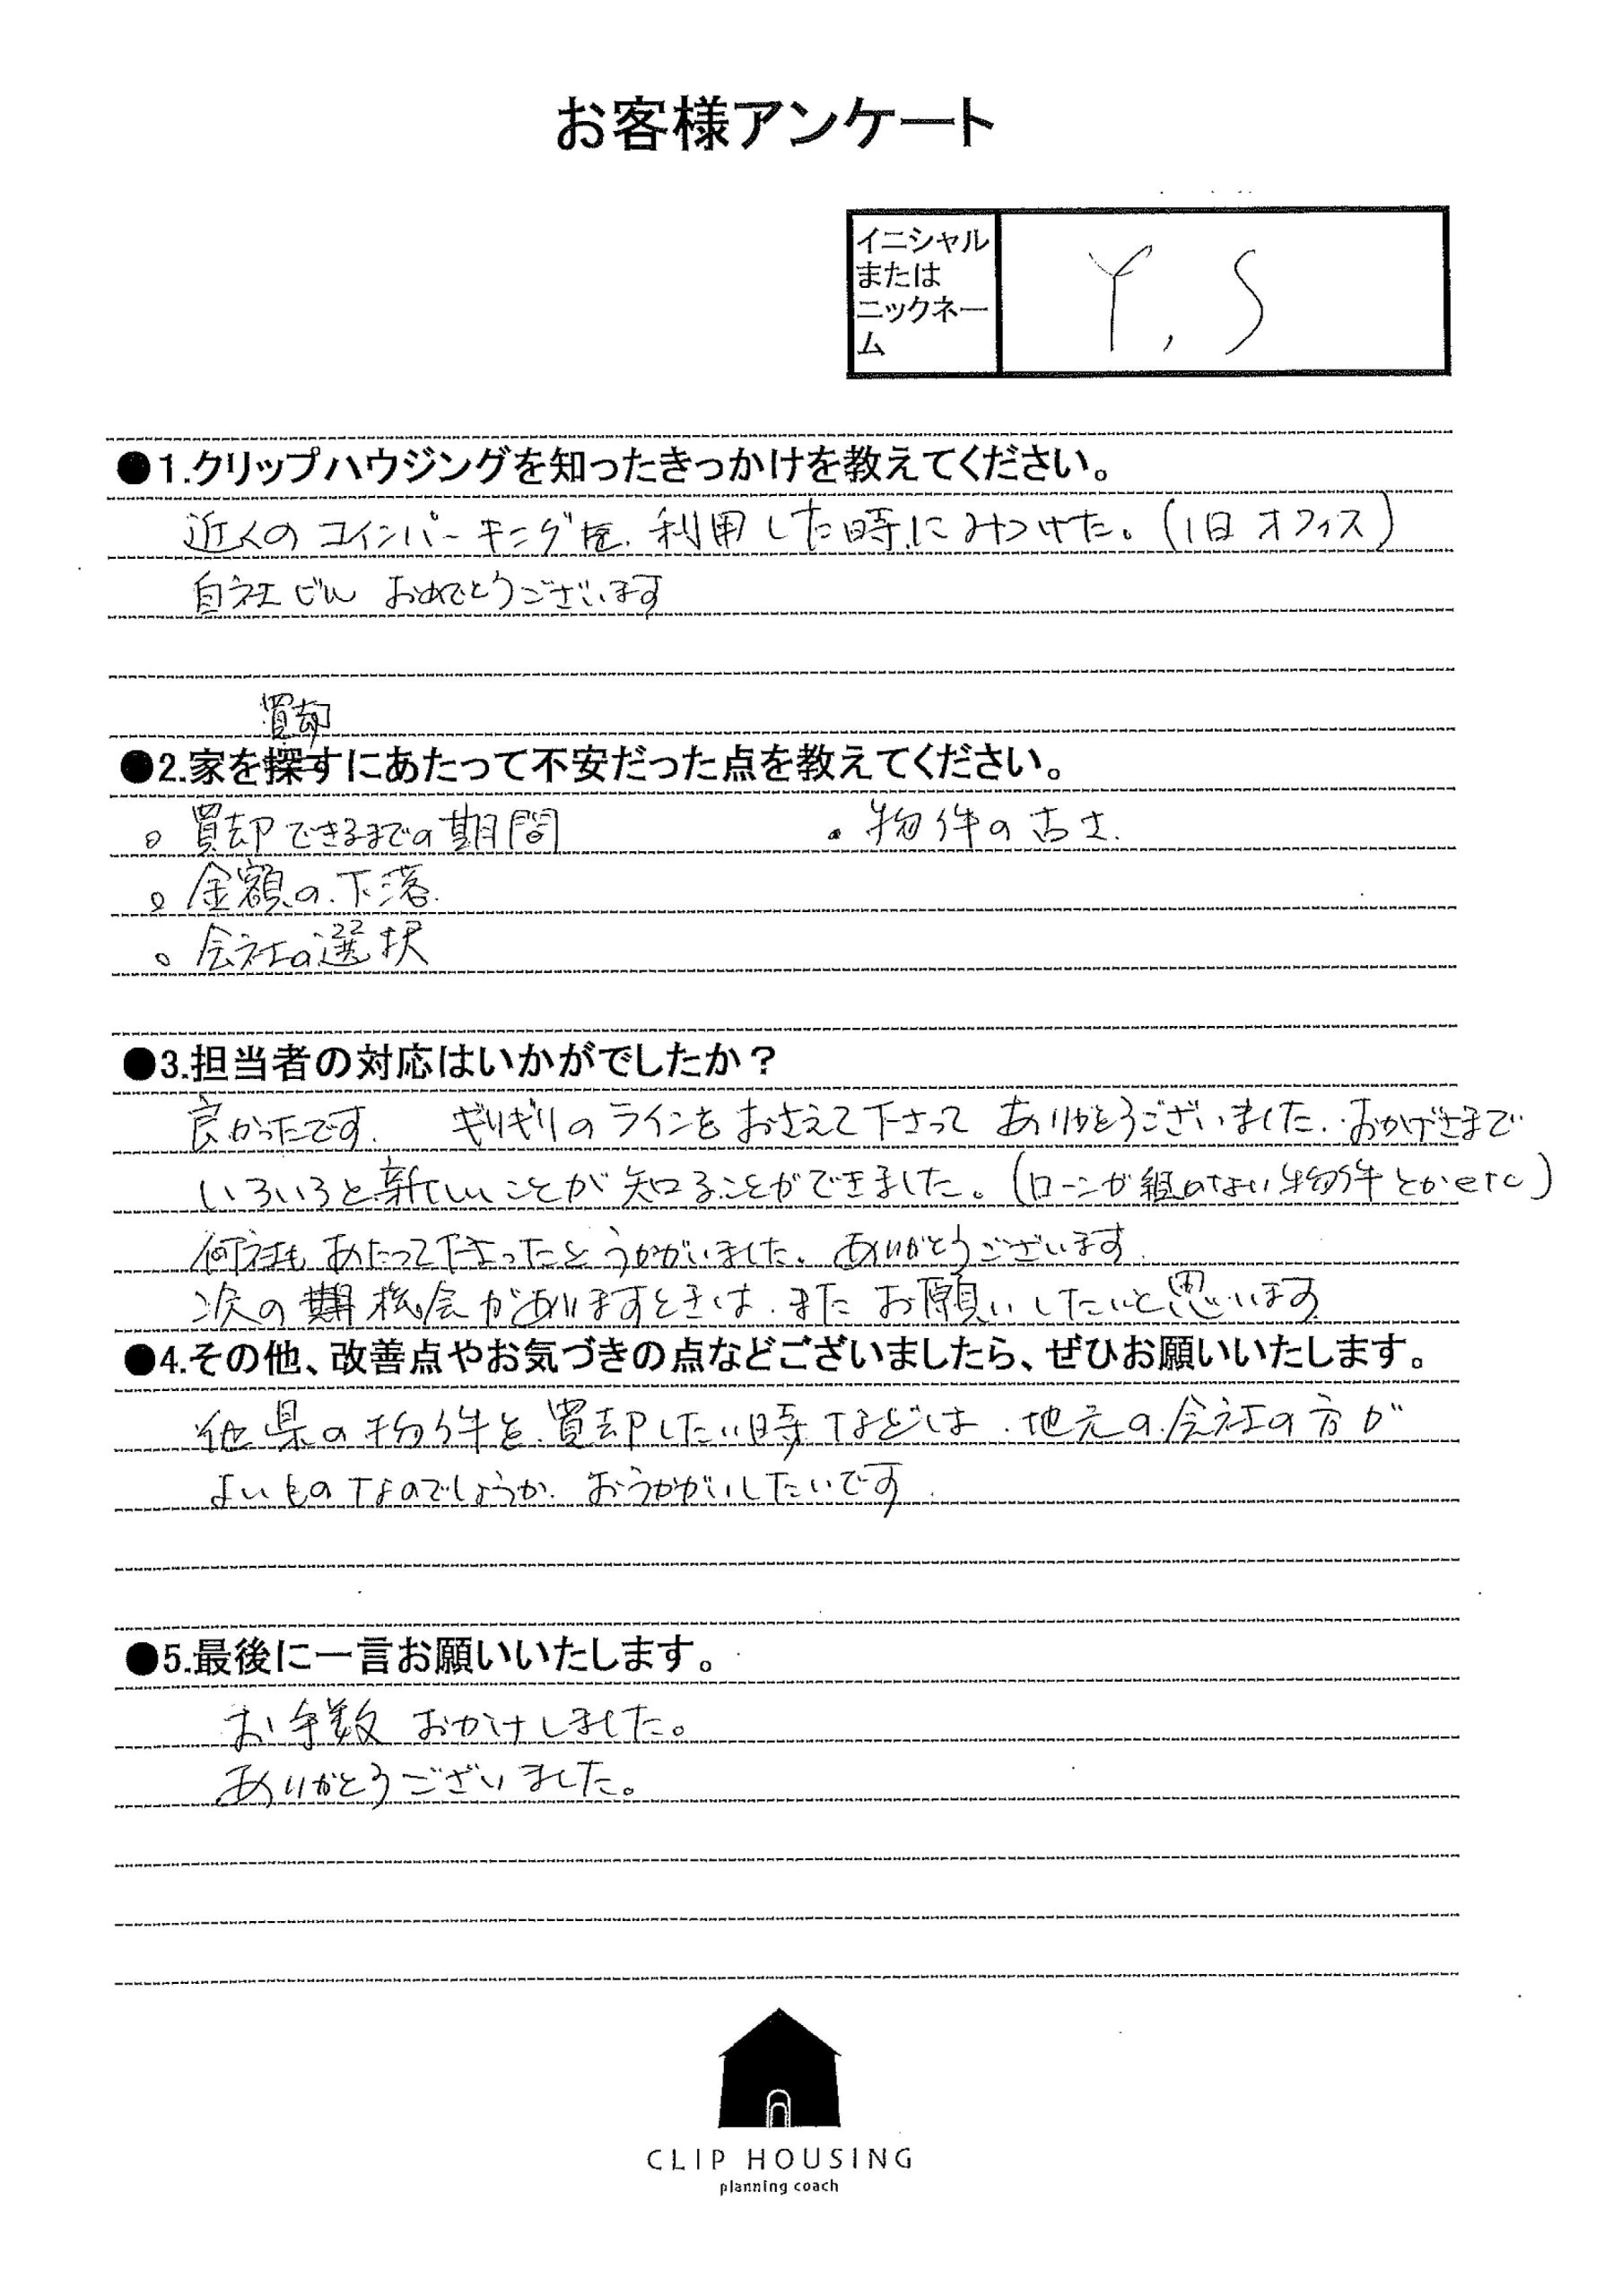 お客様アンケート
イニシャル
または
ニックネー
ム
Y,S
●1.クリップハウジングを知ったきっかけを教えてください。
近くのコインパーキングを利用した時にみつけた。(旧オフィス)
自社ビル おめでとうございます
買却
●2.家を探すにあたって不安だった点を教えてください。
○買却できるまでの期間 ・物件の古さ.
○金額の下落.
○会社の選択
●3.担当者の対応はいかがでしたか?
良かったです. ギリギリのラインをおさえて下さってありがとうございました.おかげさまで
いろいろと新しいことが知ることができました。(ローンが組めない物件とかetc)
何社もあたって下さったとうかがいました。ありがとうございます.
次の機会がありますときは.またお願いしたいと思います
●4.その他、改善点やお気づきの点などございましたら、ぜひお願いいたします。
他県の物件を買却したい時などは.地元の会社の方が
よいものなのでしょうか.おうかがいしたいです.
●5.最後に一言お願いいたします。
お手数おかけしました。
ありがとうございました。
CLIP HOUSING
planning coach